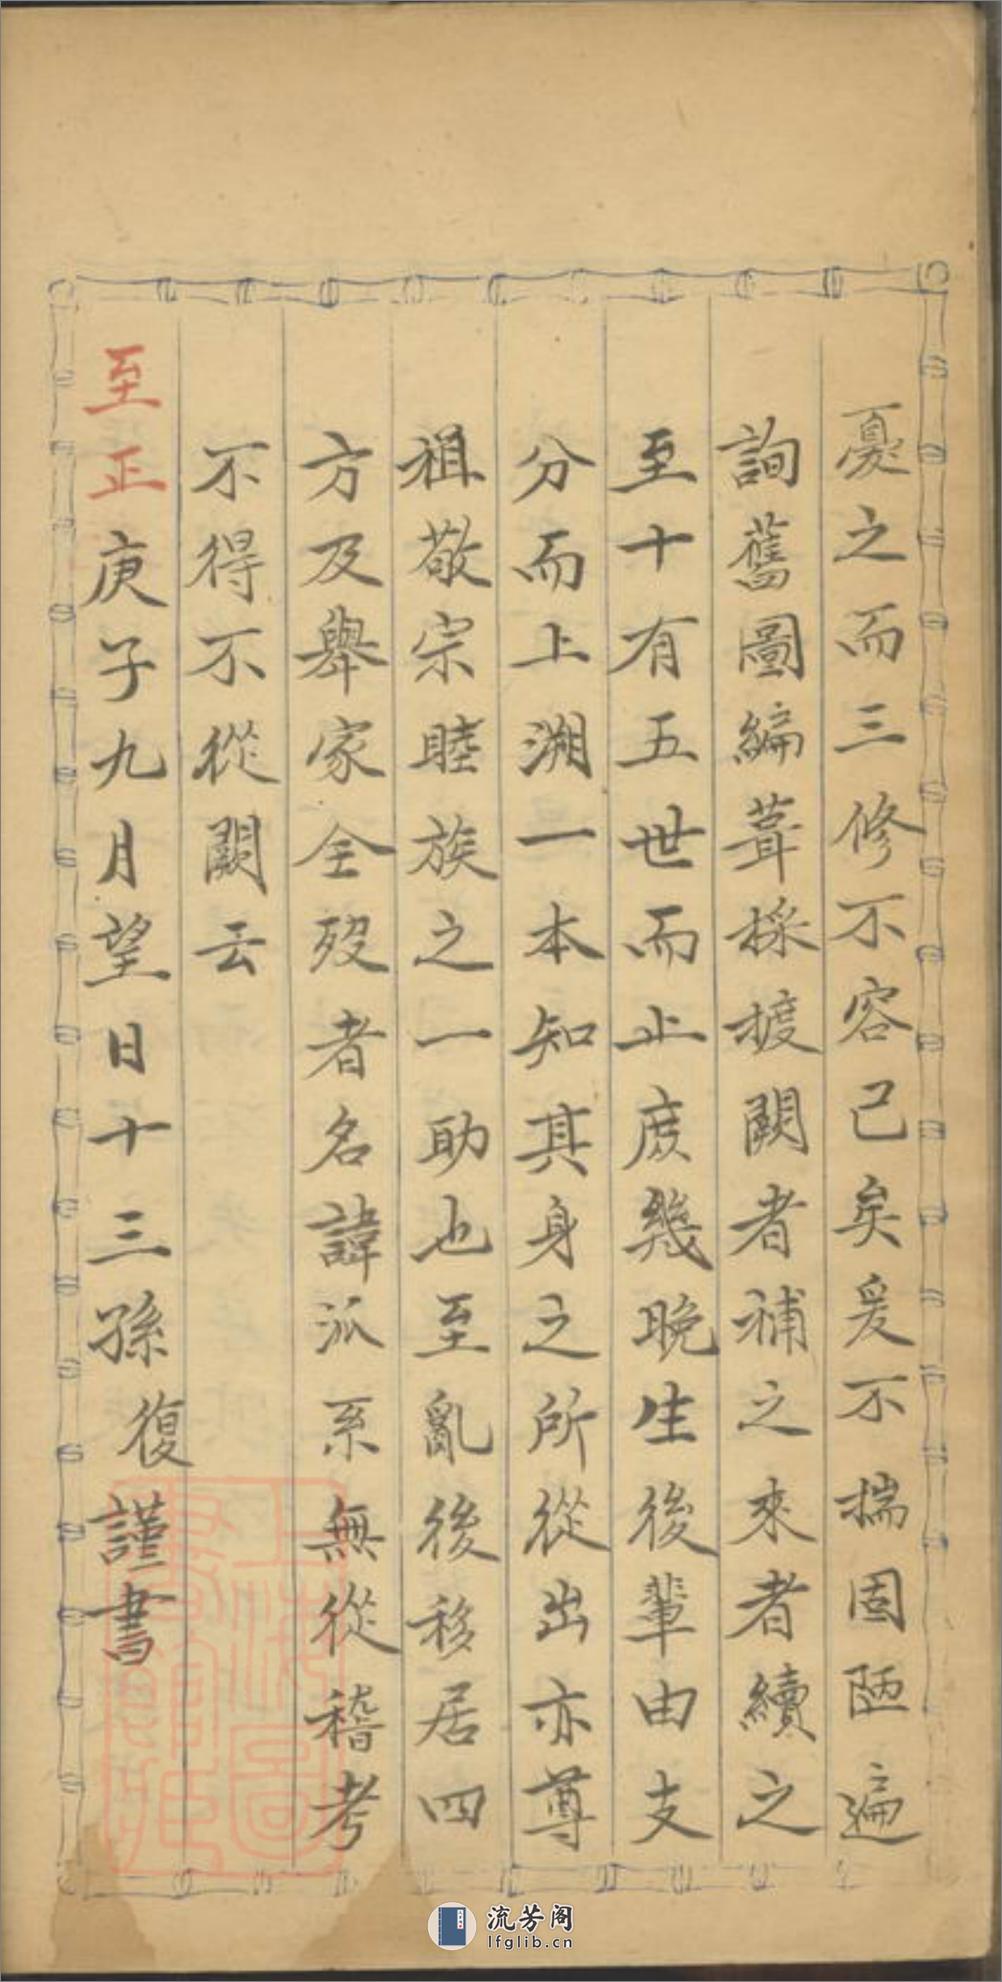 憂之而三修不容已矣爰不揣固陋遍
詢舊圖編葺採摭闕者補之來者續之
至十有五世而止庶幾晚生後輩由支
分而上溯一本知其身之所從出亦尊
祖敬宗睦族之一助也至亂後移居四
方及舉家全歿者名諱派系無從稽考
不得不從闕云
至正庚子九月望日十三孫復謹書
流芳阁
lfglib.cn